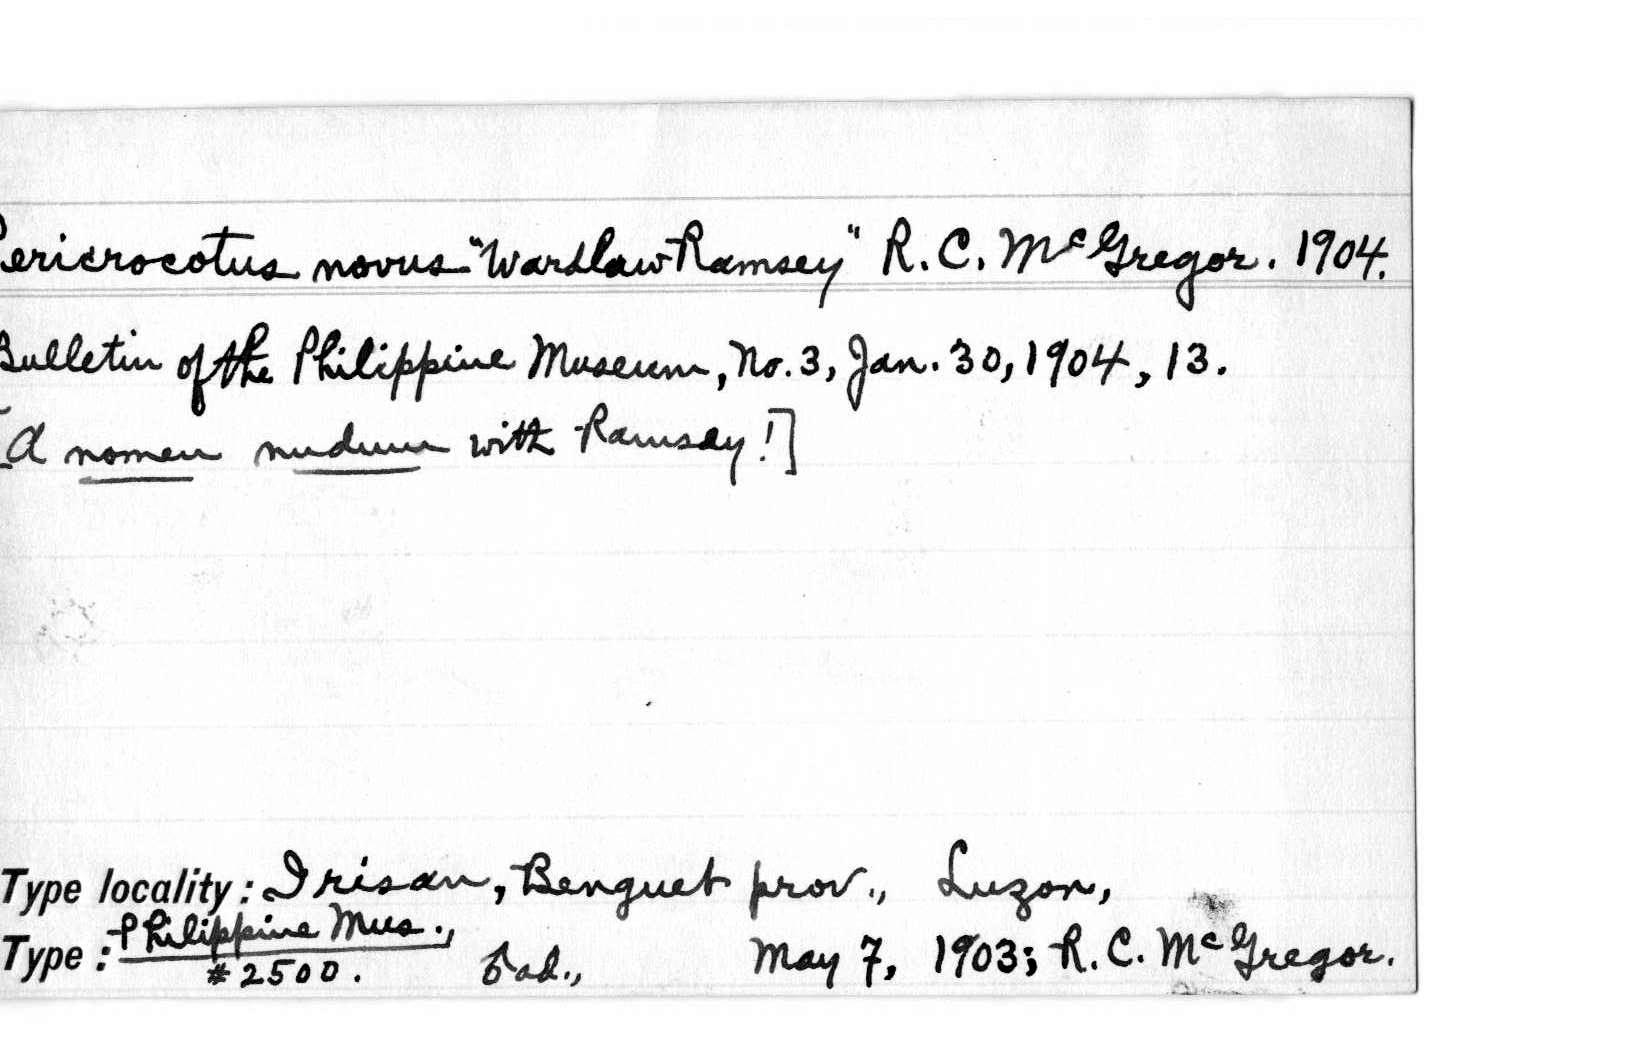 Pericrocotus novus "Wardlaw-Ramsey" R. C. McGregor. 1904.
Bulletin of the Philippine Museum, No. 3, Jan. 30, 1904, 13.
[A nomen nudum with Ramsay!]
Type locality: Irisan, Benguet prov., Luzon,
Type: Philippine Mus., #2500. ♂ad., May 7, 1903; R. C. McGregor.